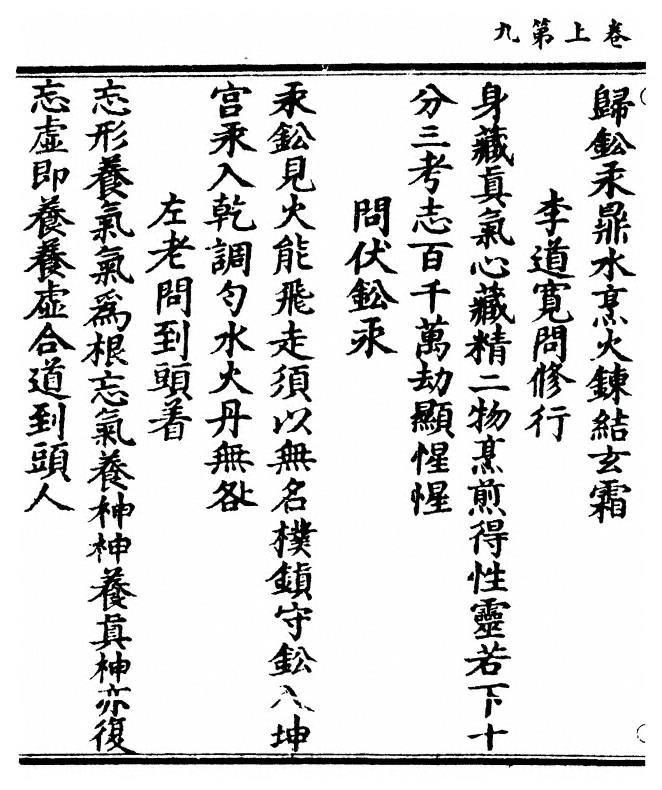 卷上第九
歸鈆汞鼎水烹火鍊結玄霜
李道寬問修行
身藏眞氣心藏精二物烹煎得性靈若下十
分三考志百千萬劫顯惺惺
問伏鈆汞
汞鈆見火能飛走須以無名樸鎮守鈆入坤
宫汞入乾調勻水火丹無咎
左老問到頭着
忘形養氣氣爲根忘氣養神神養眞神亦復
忘虛即養養虛合道到頭人